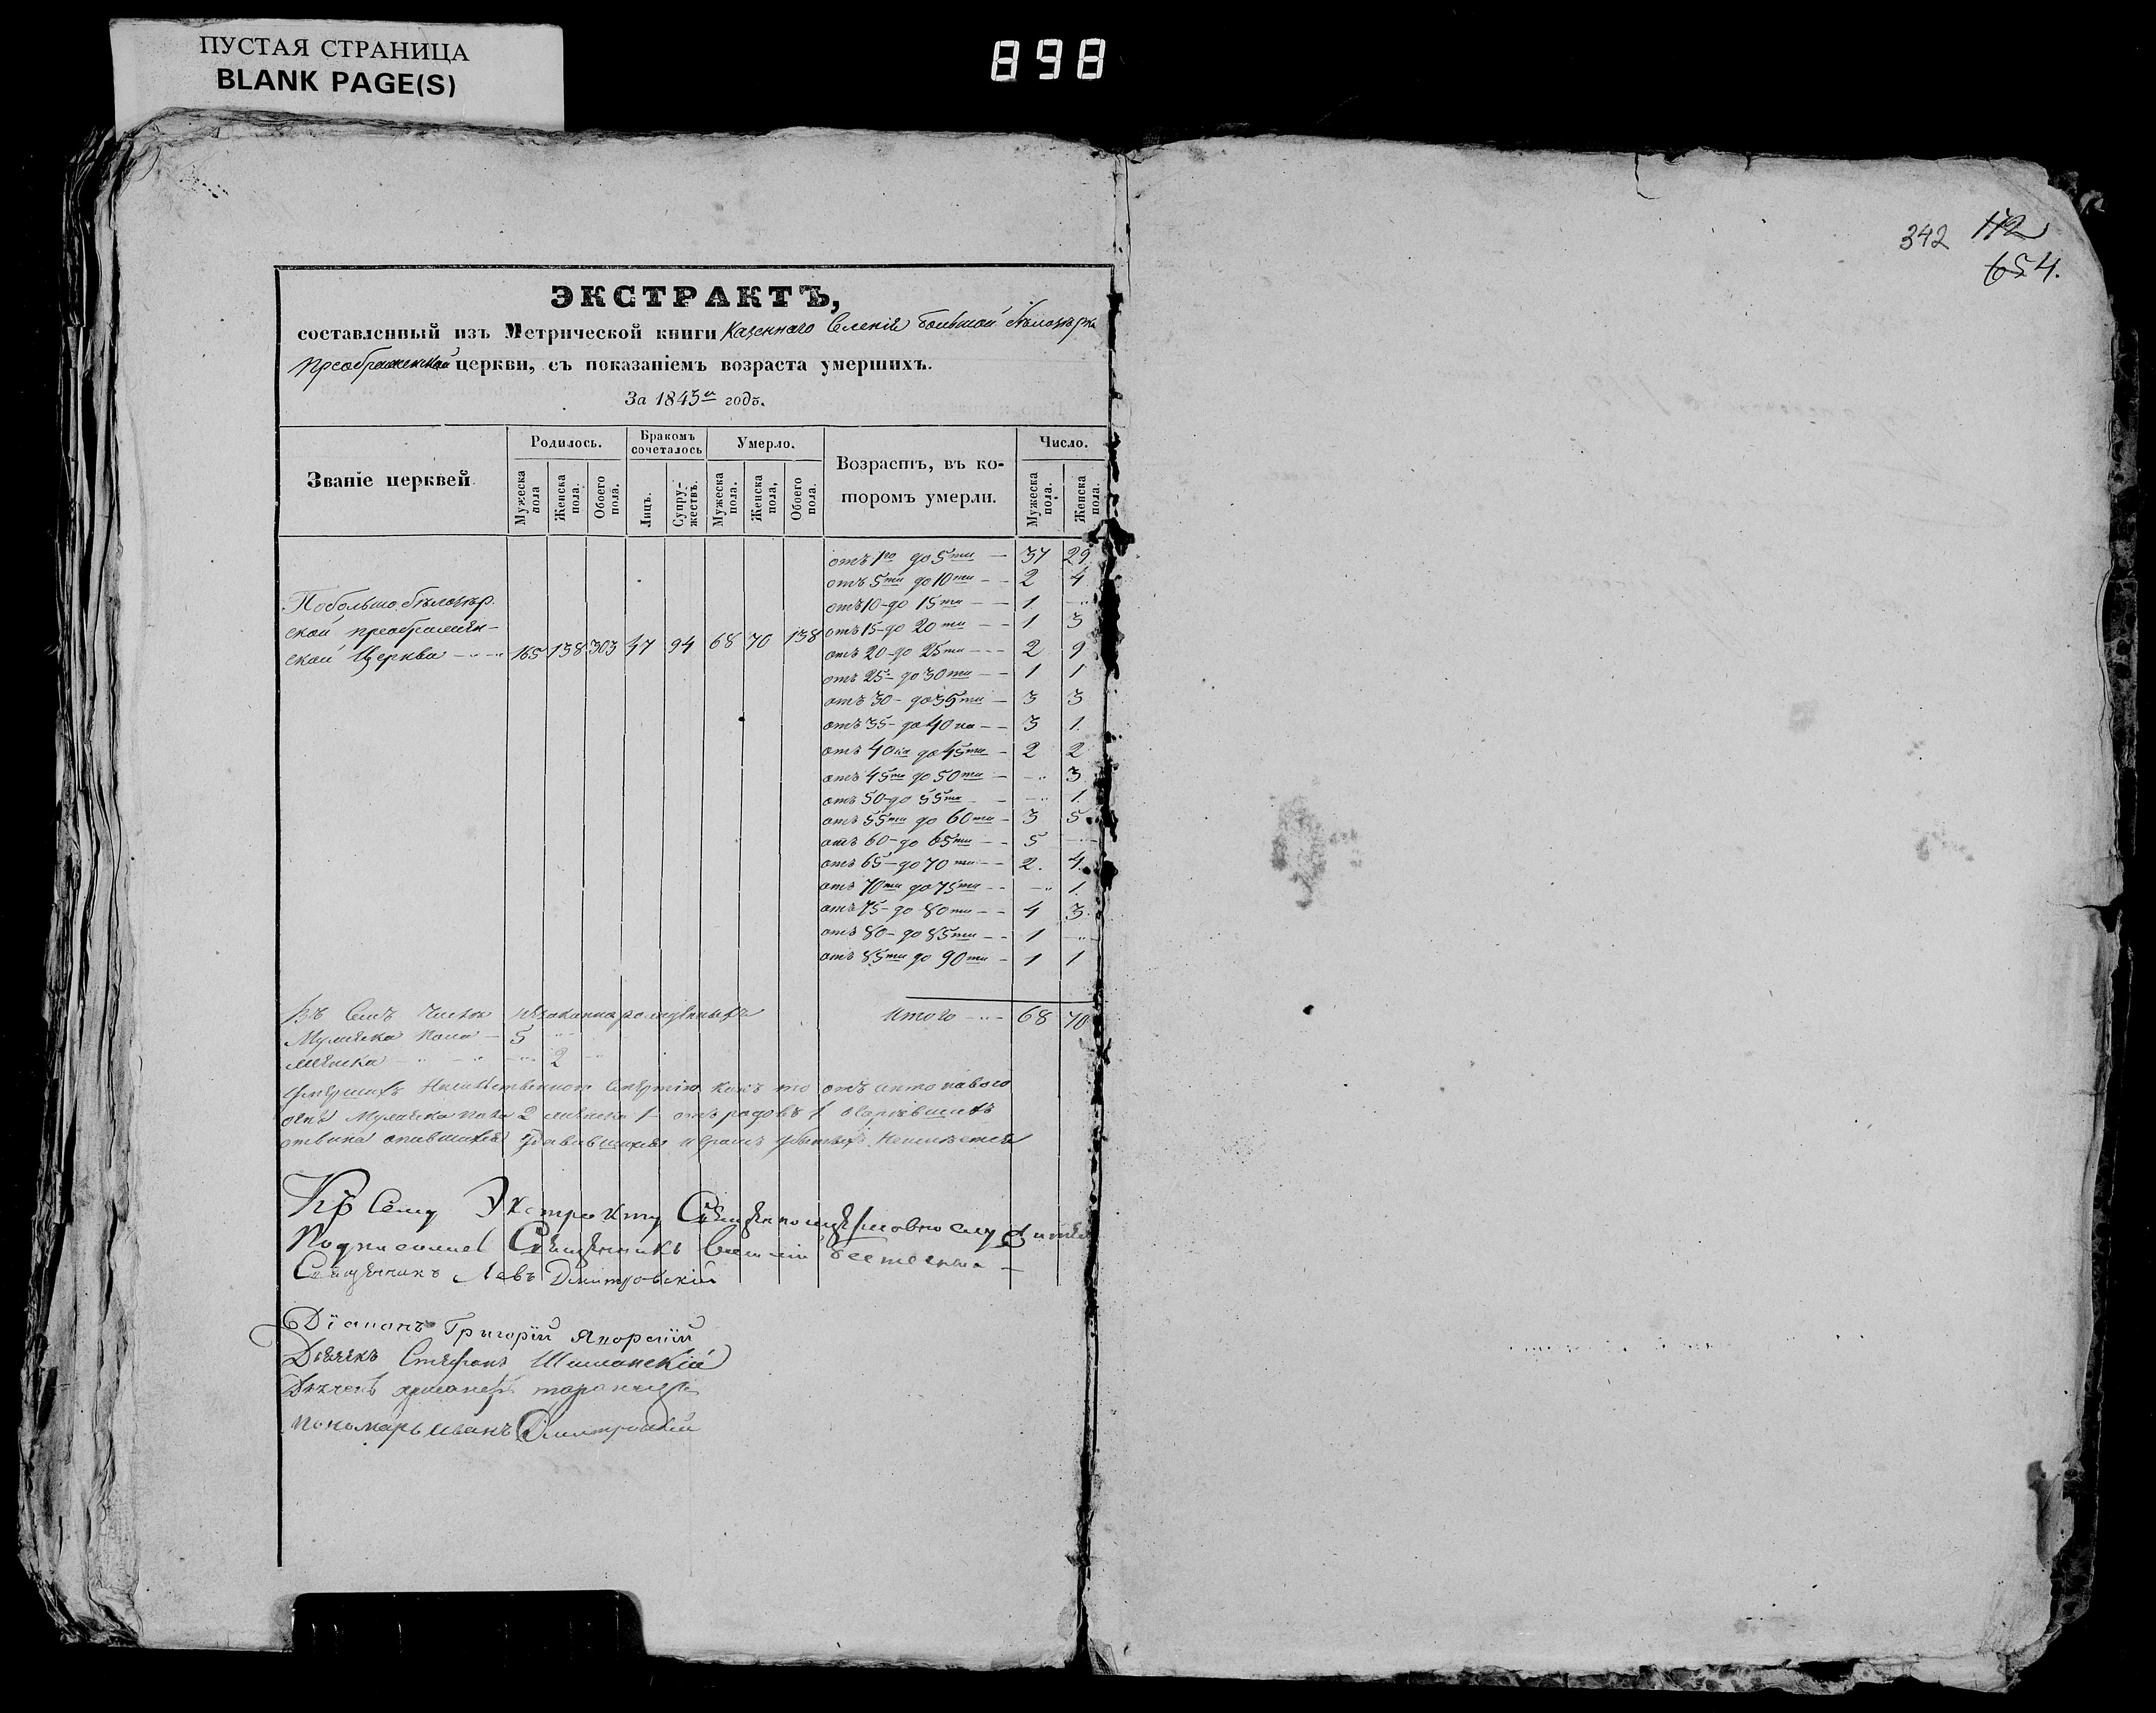 ПУСТАЯ СТРАНИЦА
BLANK PAGE(S)
898
342 172
654.
ЭКСТРАКТЪ,
составленный изъ Метрической книги Казеннаго Селенія Большой Бѣлозерки
Преображенской церкви, съ показаніемъ возраста умершихъ.
За 1845й годъ.
Званіе церквей.
Родилось.
Бракомъ сочеталось
Умерло.
Возрастъ, въ которомъ умерли.
Число.
Мужеска пола
Женска пола.
Обоего пола.
Лицъ.
Супружествъ.
Мужеска пола.
Женска пола,
Обоего пола.
Мужеска пола.
Женска пола.
По большо бѣлозер.
ской преображен-
ской Церкви 165 138 303 47 94 68 70 138
отъ 1го до 5ти — 37 29
отъ 5ти до 10ти — 2 4
отъ 10 до 15ти — 1 —
отъ 15 до 20ти — 1 3
отъ 20 до 25ти — 2 9
отъ 25 до 30ти — 1 1
отъ 30 до 35ти — 3 3
отъ 35 до 40ка — 3 1.
отъ 40ка до 45ти — 2 2
отъ 45ти до 50ти — — 3
отъ 50 до 55ти — — 1.
отъ 55ти до 60ти — 3 5
отъ 60 до 65ти — 5 —
отъ 65 до 70ти — 2. 4.
отъ 70ти до 75ти — — 1.
отъ 75 до 80ти — 4 3.
отъ 80 до 85ти — 1 —
отъ 85ти до 90ти — 1 1
Итого — 68 70
Въ семъ числѣ незаконнорожденныхъ
Мужеска пола — 5
женска — 2
умершихъ смертію какъ то отъ
Мужеска пола 2 женска 1 отъ родовъ 1
отвина опившихся убитыхъ неимѣется
Къ сему Экстракту Священноцерковнослужители
Подписались Священникъ
Священникъ Левъ Дмитровскій
Діаконъ Григорій Яворскій
Дьячекъ Стефанъ Шиманскій
Дьячекъ
пономарь Иванъ Дмитровскій